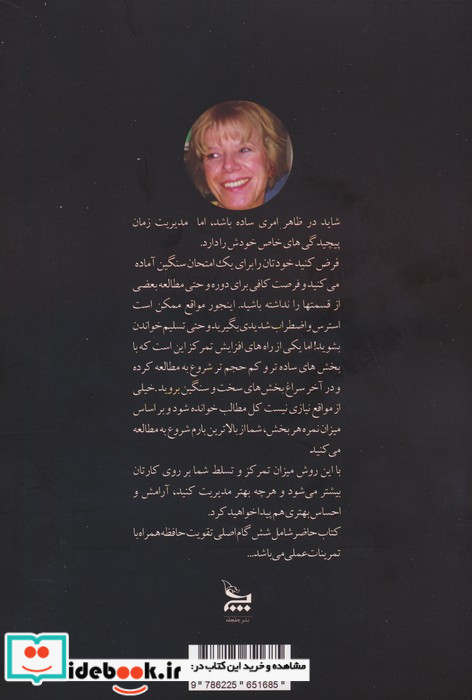 شاید در ظاهر امری ساده باشد، اما مدیریت زمان
پیچیدگی‌های خاص خودش را دارد.
فرض کنید خودتان را برای یک امتحان سنگین آماده
می‌کنید و فرصت کافی برای دوره و حتی مطالعه بعضی
از قسمتها را نداشته باشید. اینجور مواقع ممکن است
استرس و اضطراب شدیدی بگیرید و حتی تسلیم خواندن
بشوید! اما یکی از راه های افزایش تمرکز این است که با
بخش های ساده تر و کم حجم تر شروع به مطالعه کرده
و در آخر سراغ بخش‌های سخت و سنگین بروید. خیلی
از مواقع نیازی نیست کل مطالب خوانده شود و بر اساس
میزان نمره هر بخش، شما از بالاترین بارم شروع به مطالعه
می‌کنید.
با این روش میزان تمرکز و تسلط شما بر روی کارتان
بیشتر می‌شود و هرچه بهتر مدیریت کنید، آرامش و
احساس بهتری هم پیدا خواهید کرد.
کتاب حاضر شامل شش گام اصلی تقویت حافظه همراه با
تمرینات عملی می‌باشد...
نشر چلچله
مشاهده و خرید این کتاب در:
idebook.ir
9 786225 651685